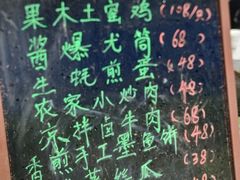 果木土窑鸡(108/只)
酱爆尤筒(68)
生蚝煎蛋(48)
农家小炒肉(48)
凉拌卤牛肉(68)
香煎手工墨鱼饼(48)
丝瓜(38)